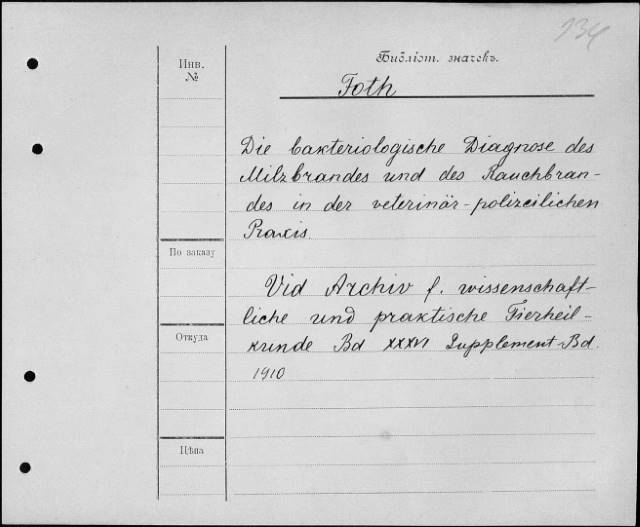 934
Инв.
№
Библіот. значекъ.
Foth
Die bakteriologische Diagnose des
Milzbrandes und des Rauchbran-
des in der veterinär-polizeilichen
Praxis.
По заказу
Vid Archiv f. wissenschaft-
liche und praktische Tierheil-
Откуда
kunde Bd XXXVI Supplement-Bd.
1910
Цѣна